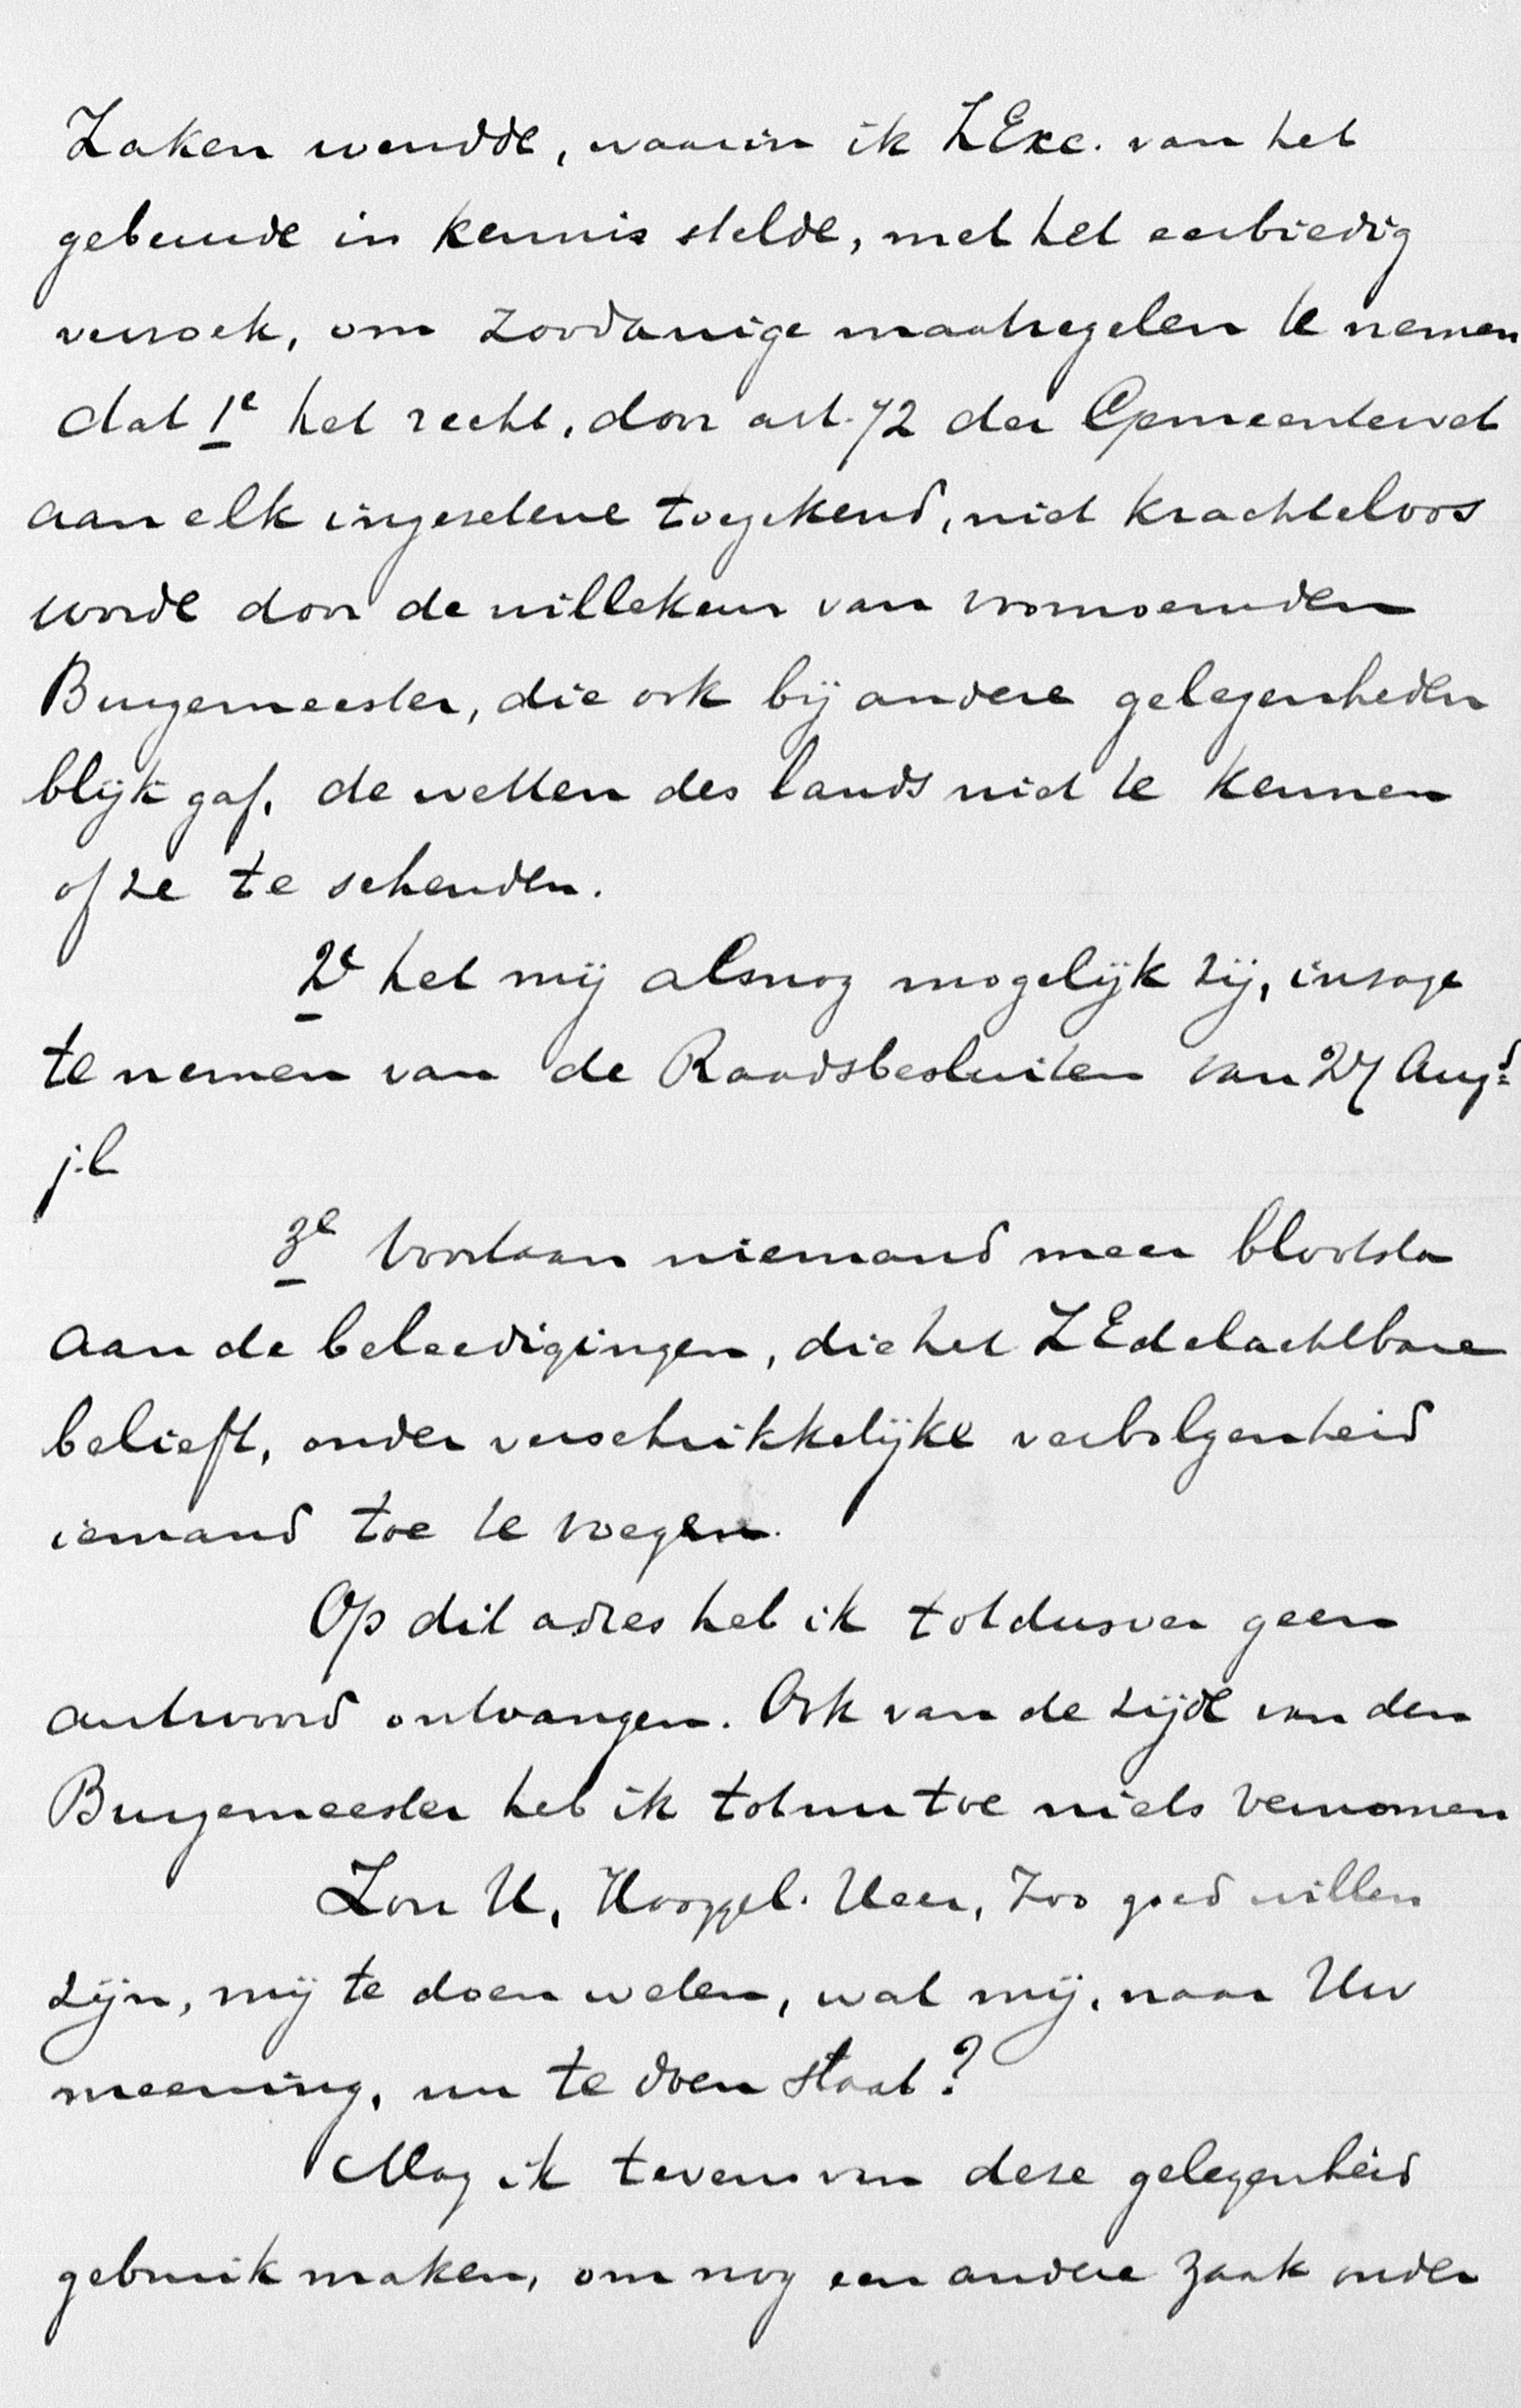 Zaken wendde, waarin ik ZExc. van het
gebeurde in kennis stelde, met het eerbiedig
verzoek, om zoodanige maatregelen te nemen
dat 1e het recht, door art. 72 der Gemeentewet
aan elk ingezetene toegekend, niet krachteloos
worde door de willekeur van voornoemden
Burgemeester, die ook bij andere gelegenheden
blijk gaf, de wetten des lands niet te kennen
of ze te schenden.
2e het mij alsnog mogelijk zij, inzage
te nemen van de Raadsbesluiten van 27 Augs
j.l
3e Voortaan niemand meer blootsta
aan de beleedigingen, die het ZEdelachtbare
belieft, onder verschrikkelijke verbolgenheid
iemand toe te voegen.
Op dit adres heb ik totdusver geen
antwoord ontvangen. Ook van de zijde van den
Burgemeester heb ik totnutoe niets vernomen
Zou U, Hooggel. Heer, zoo goed willen
zijn, mij te doen weten, wat mij, naar Uw
meening, nu te doen staat?
Mag ik tevens van deze gelegenheid
gebruik maken, om nog een andere zaak onder